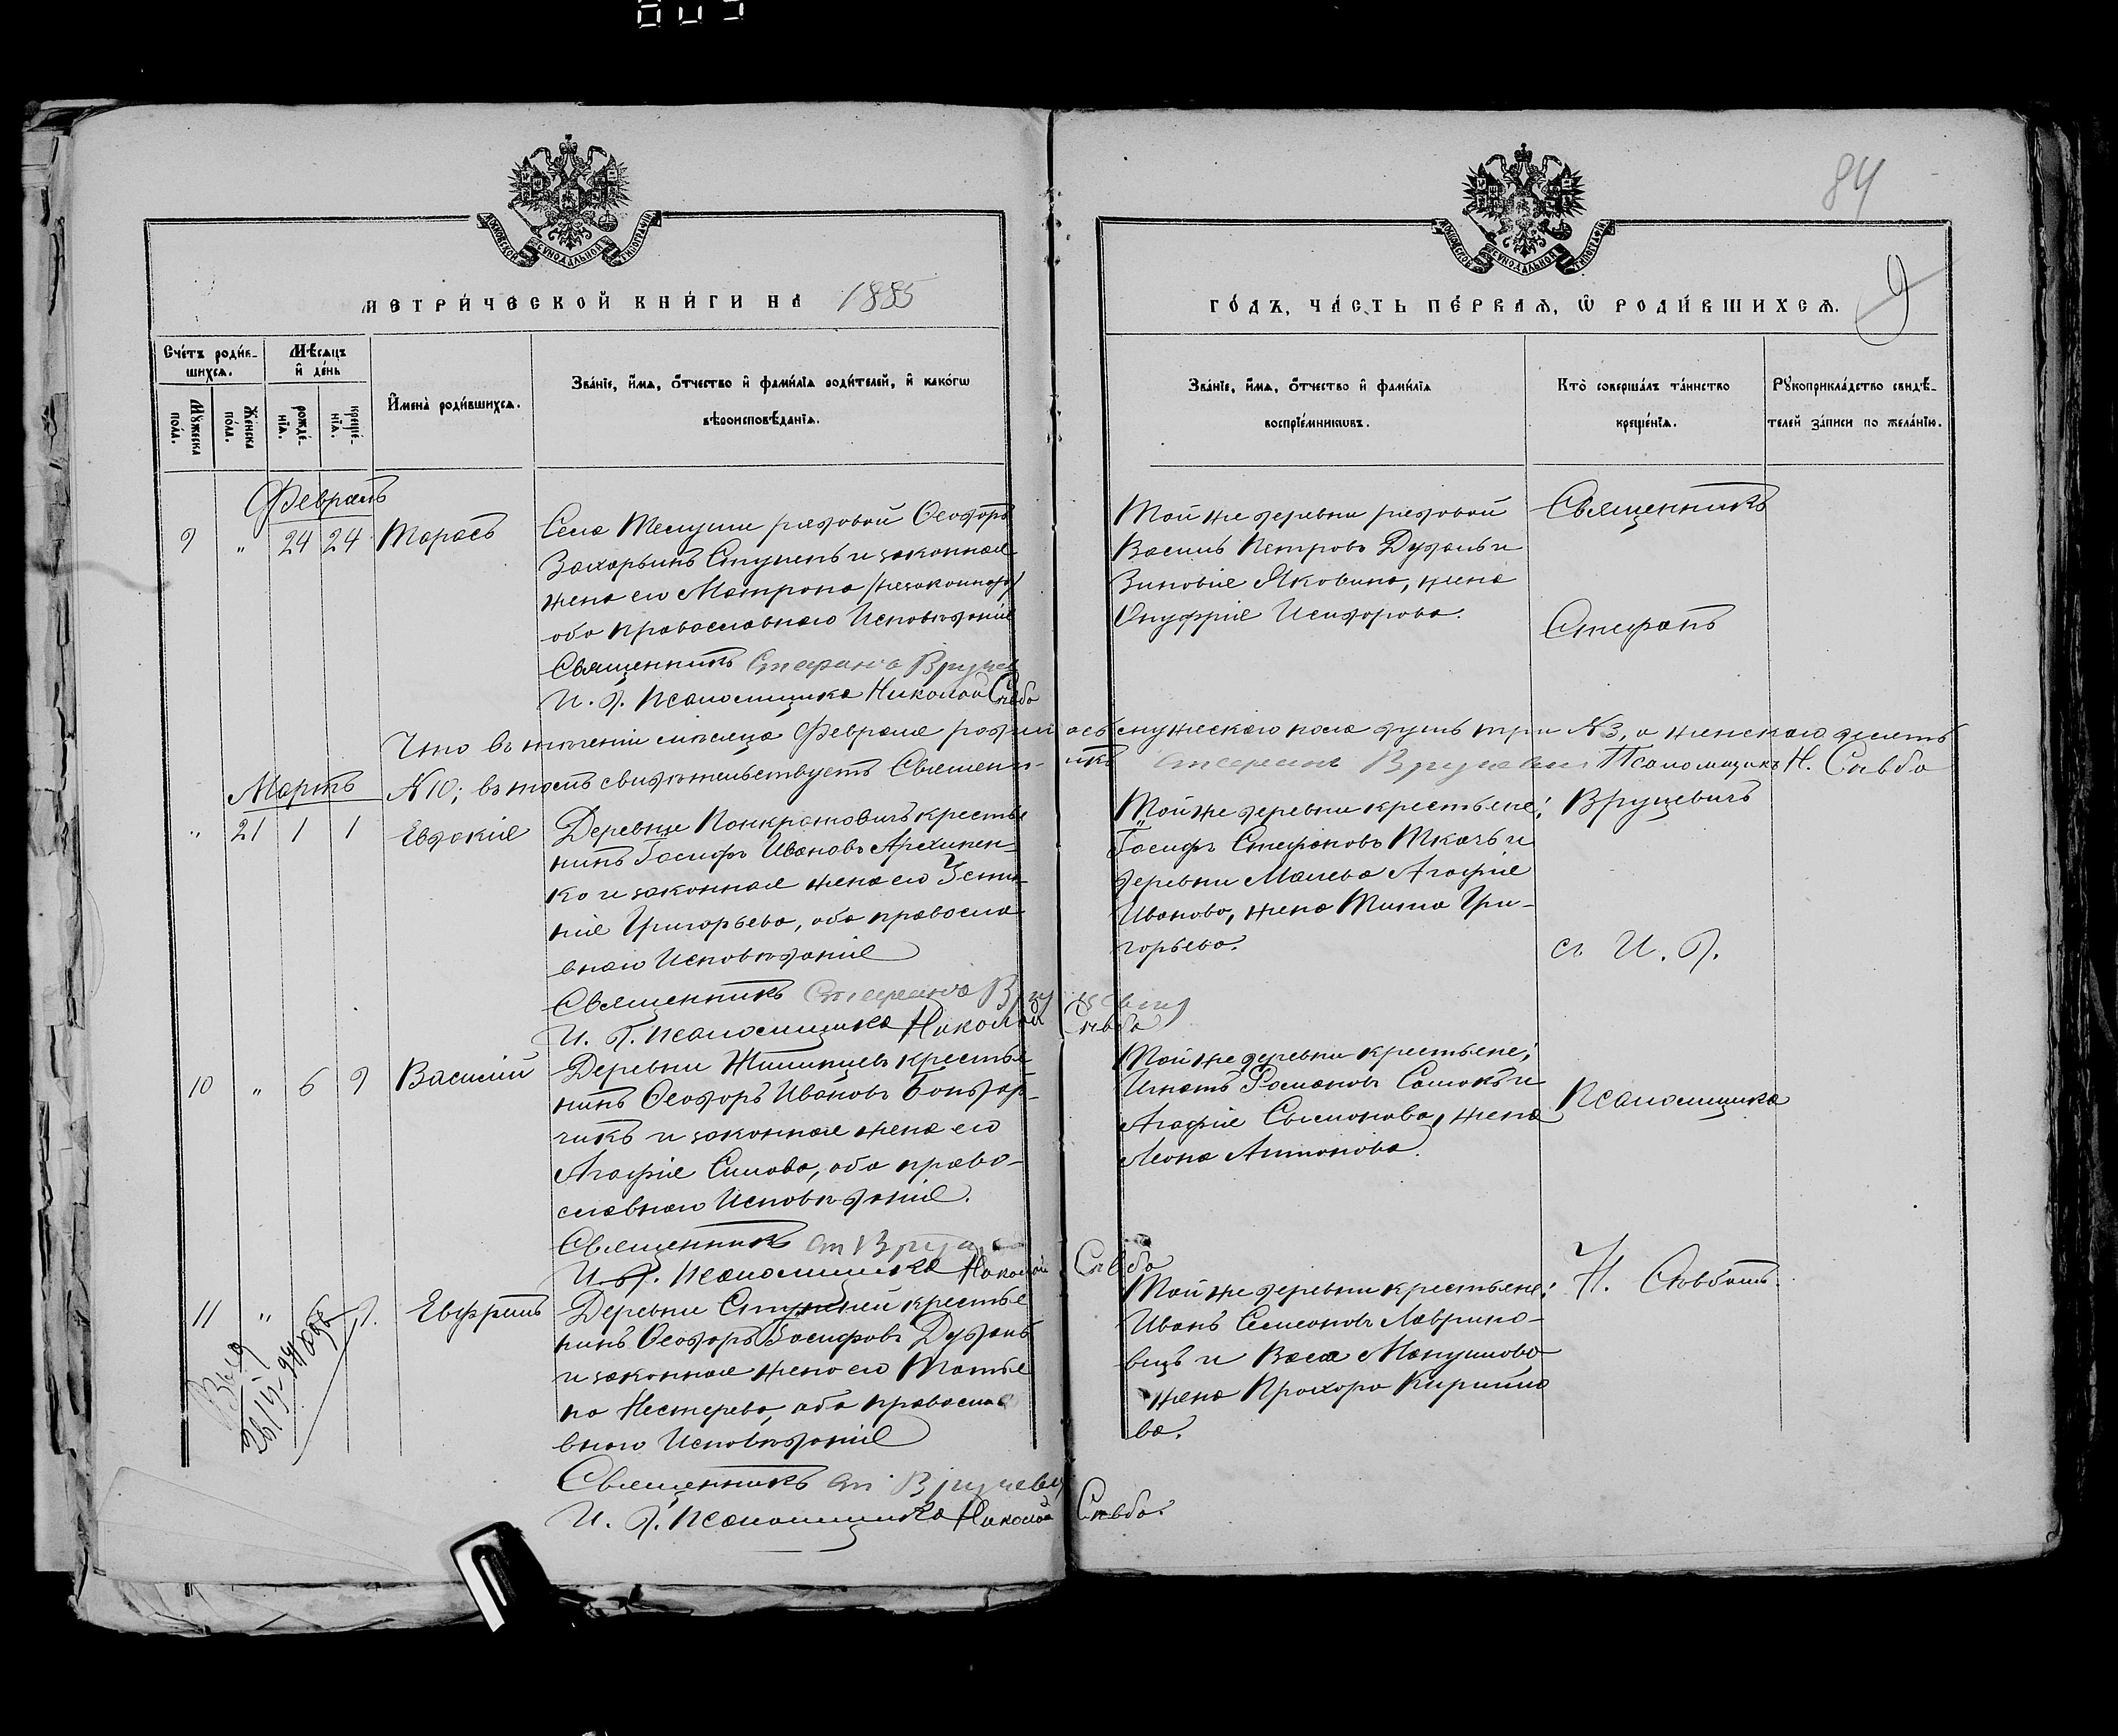 84
9
МЕТРИ́ЧЕСКОЙ КНИ́ГИ НА 1885
ГО́ДЪ, ЧА́СТЬ ПЕ́РВАѦ, Ѡ РОДИ́ВШИХСѦ.
Сче́тъ роди́в-
шихсѧ.
Мѣ́сѧцъ
и де́нь
Мꙋ́жеска
по́ла.
Же́нска
по́ла.
рожде́-
нїѧ.
креще́-
нїѧ.
И҆мена̀ роди́вшихсѧ.
Зва́нїе, и҆́мѧ, ѻ҆́тчество и҆ фами́лїѧ роди́телей, и҆ како́гѡ
вѣроисповѣ́данїѧ.
Зва́нїе, и҆́мѧ, ѻ҆́тчество и҆ фами́лїѧ
воспрїе́мникѡвъ.
Кто̀ соверша́лъ та́инство
креще́нїѧ.
Рꙋкоприкла́дство свидѣ́-
телей за́писи по жела́нїю.
Февраль
9 " 24 24 Тарасъ
Села Телуши рядовой Ѳеодоръ
Захарьинъ Ступень и законная
жена его Матрона
оба православнаго Исповѣданія
Священникъ Стефанъ Вруцев
И. д. псаломщика Николай Савбо
Той же деревни рядовой
Василь Петровъ Дудаль и
Зиновія Яковина, жена
Онуфрія Исидорова.
Священникъ
Стефанъ
Что въ теченіи мѣсяца Февраля родилось мужескаго пола душъ три №3, а женскаго десять
№10; въ томъ свидѣтельствуетъ Священникъ Стефанъ Вруцевич Псаломщикъ Н. Савбо
Мартъ
" 21 1 1 Евдокія
Деревни Панкратовичъ крестья
нинъ Іосифъ Ивановъ Архипен-
ко и законная жена его Усти-
нія Григорьева, оба правосла
внаго Исповѣданія
Священникъ Стефанъ Вруцевич
И. д. псаломщика Николай Савбо
Той же деревни крестьяне:
Іосифъ Стефановъ Ткачъ и
деревни Малева Агафія
Иванова, жена Тита Гри-
горьева.
Вруцевичъ
съ И. д.
10 " 6 9 Василій
Деревни крестья
нинъ Ѳеодоръ Ивановъ Бондар-
чикъ и законная жена его
Агафія Силова, оба право-
славнаго Исповѣданія.
Священникъ Ст Вруц
И. д. псаломщика Николай Савбо
Той же деревни крестьяне;
Игнатъ Романовъ Самокъ и
Агафія Сымонова, жена
Леона Антонова.
Псаломщика
11 " 9. Евфримъ
Деревни крестья
нинъ Ѳеодоръ Іосифовъ Дудаль
и законная жена его Татья
на Нестерова, оба правосла
внаго Исповѣданія
Священникъ Ст Вруцевич
И. д. псаломщика Николай Савбо.
Той же деревни крестьяне:
Иванъ Семеоновъ Лаврино-
вецъ и Васа
жена Прохора Кирилло
ва.
Н. Савбатъ.